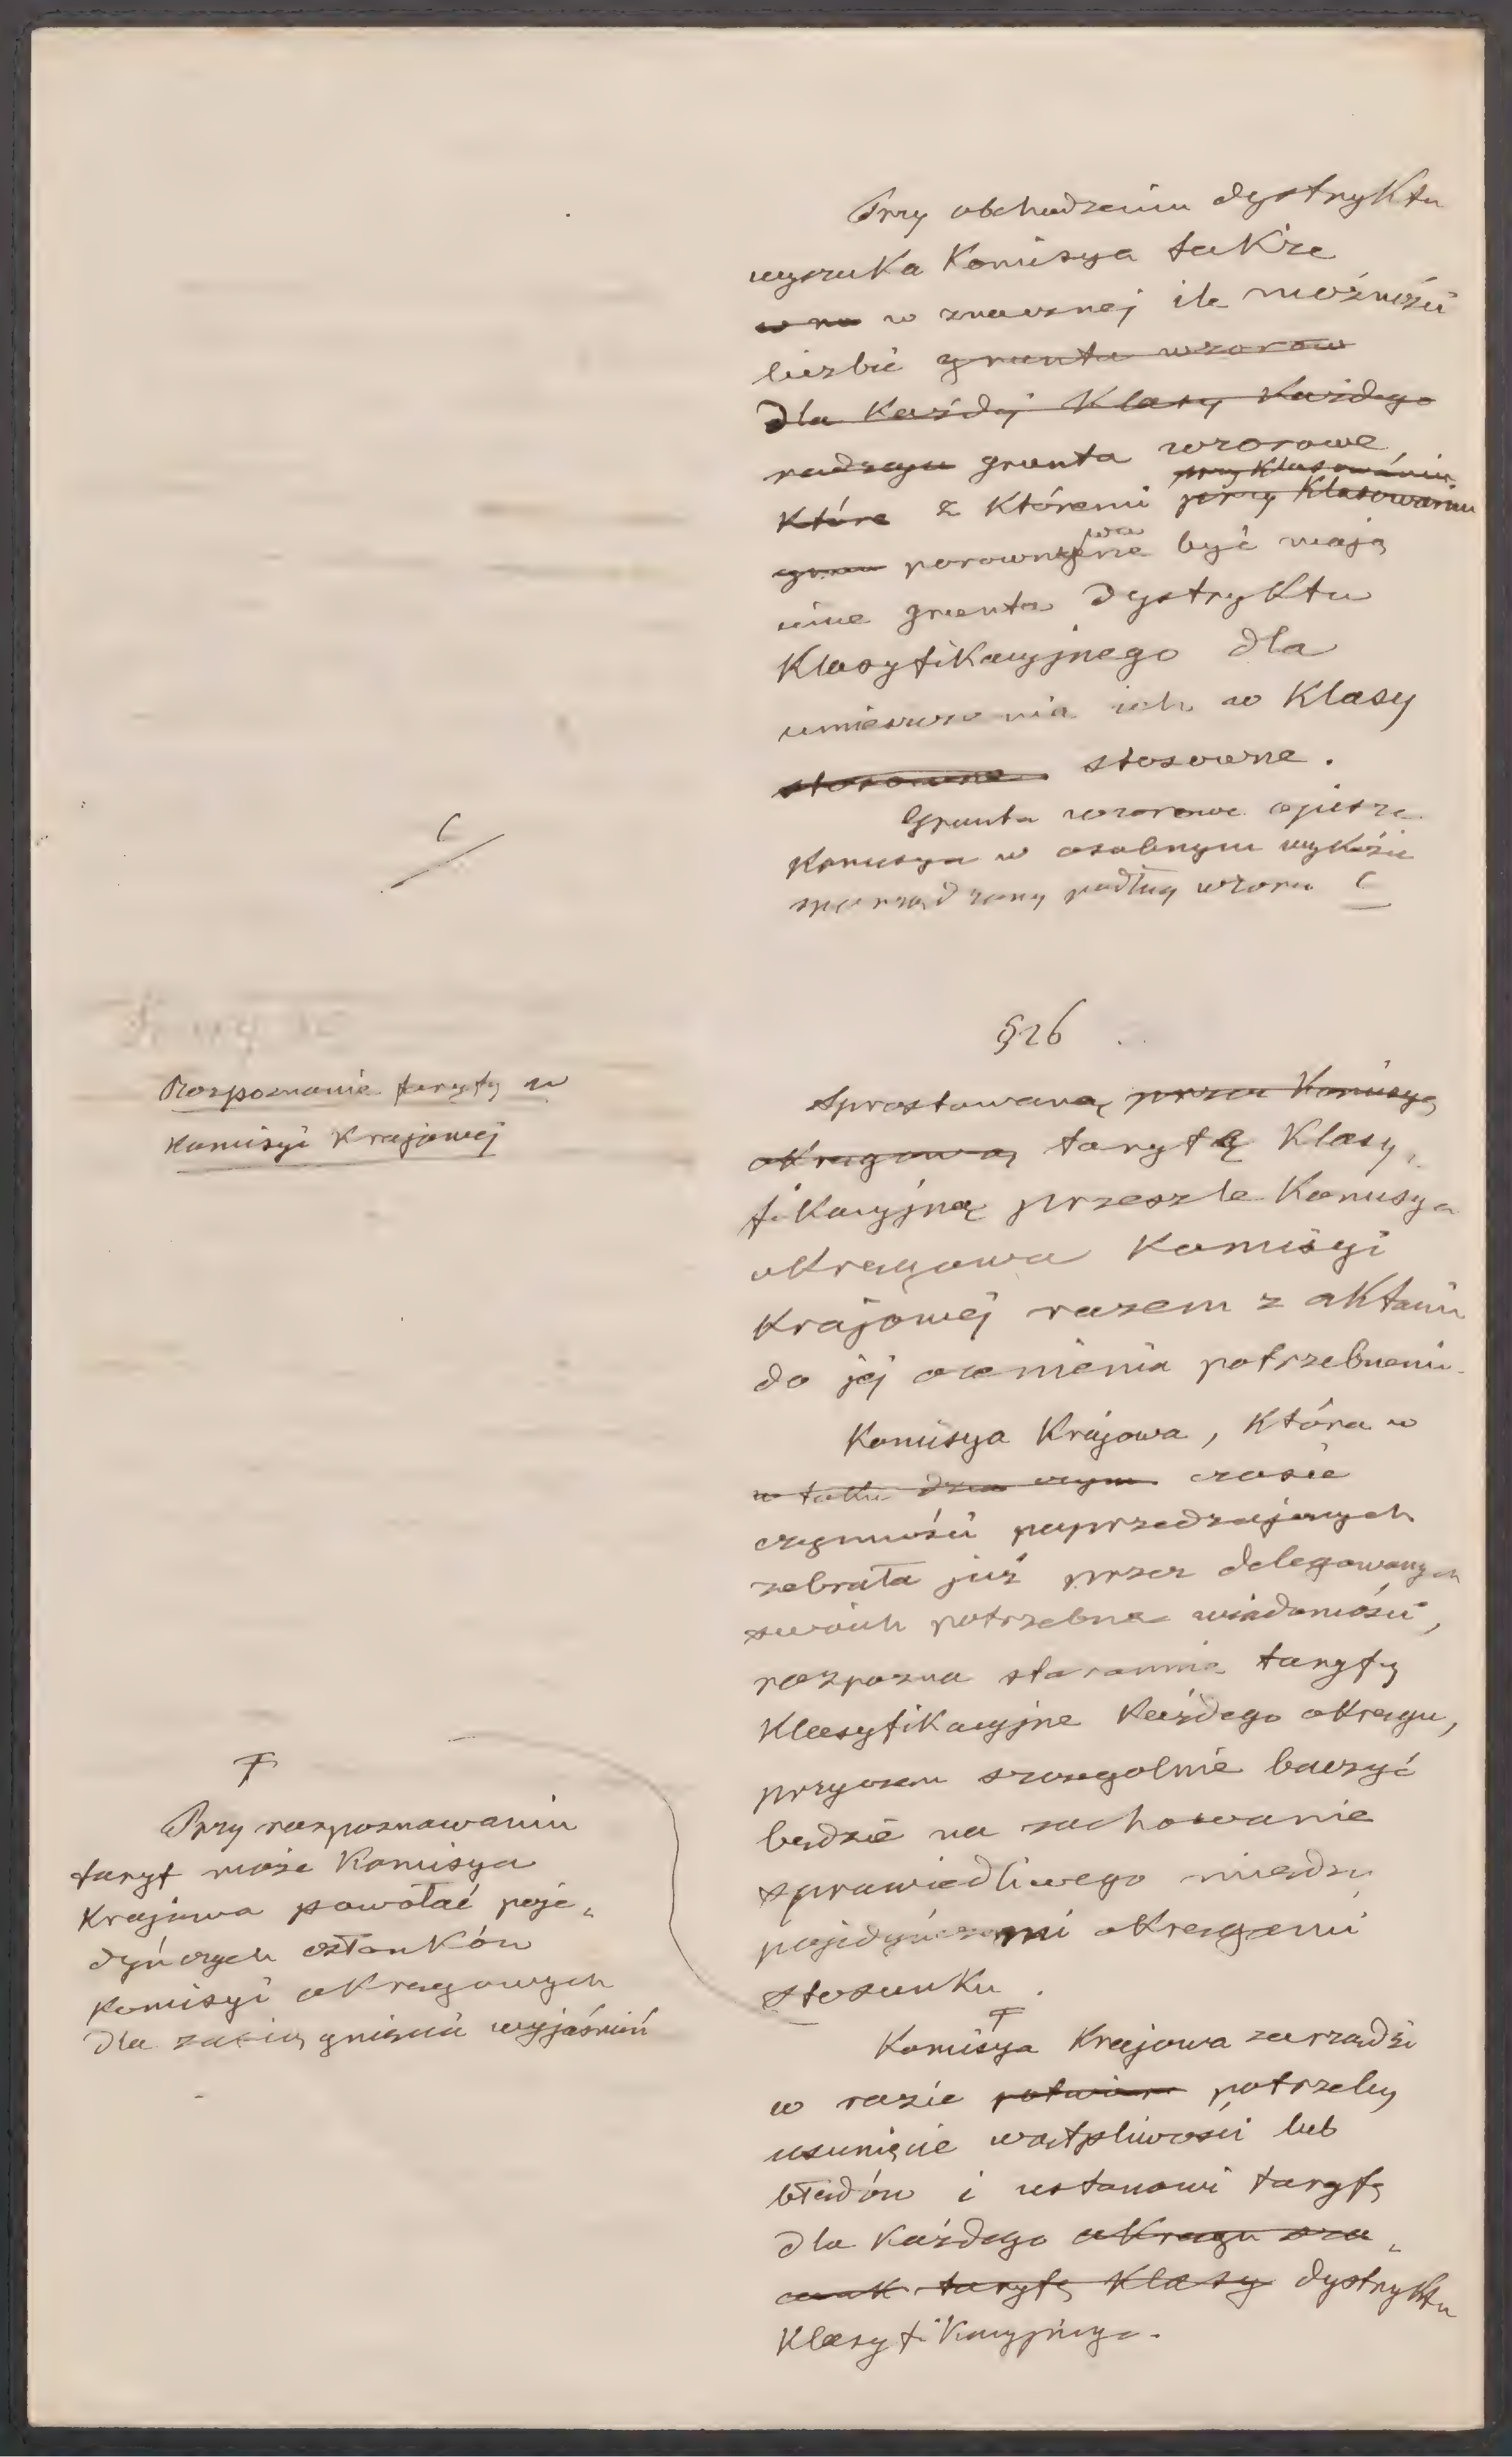 Przy obchodzeniu dystryktu
wyszuka Komisya także
w na w znacznej ile możności
liczbie grunta wzorow
dla Każdej Klasy Każdego
rodzaju grunta wzorowe,
przy Klasowaniu
Które z Któremi przy Klasowaniu
porownywane być mają
inne grunta dystryktu
Klasyfikacyjnego dla
umieszczenia ich w Klasy
stosowne. stosowne.
Grunta wzorowe opisze
Komisya w osobnym wykazie
sporządzony podług wzoru C
C
§ 26
Rozpoznanie taryfy w
Komisyi Krajowej
Sprostowaną przez Komisyę
okręgową taryfę Klasy„
fikacyjną przeszle Komisya
okręgowa Komisyi
Krajowej razem z aktami
do jej ocenienia potrzebnemi.
Komisya Krajowa, Która w
w toku czasie
czynności poprzedzających
zebrała już przez delegowanych
swoich potrzebne wiadomości,
rozpozna starannie taryfy
Klasyfikacyjne Każdego okręgu,
przyczem szczególnie baczyć
będzie na zachowanie
sprawiedliwego między
pojedyńczemi okręgami
stosunku.
Ŧ
Przy rozpoznawaniu
taryf może Komisya
Krajowa powołać poje„
dyńczych członków
Komisyi okręgowych
dla zasiągnięcia wyjaśnień
Ŧ
Komisya Krajowa zarządzi
w razie potwier potrzeby
usunięcie wątpliwości lub
błędów i ustanowi taryfę
dla Każdego okręgu sza„
cunk. taryfę Klasy dystryktu
Klasyfikacyjnego.